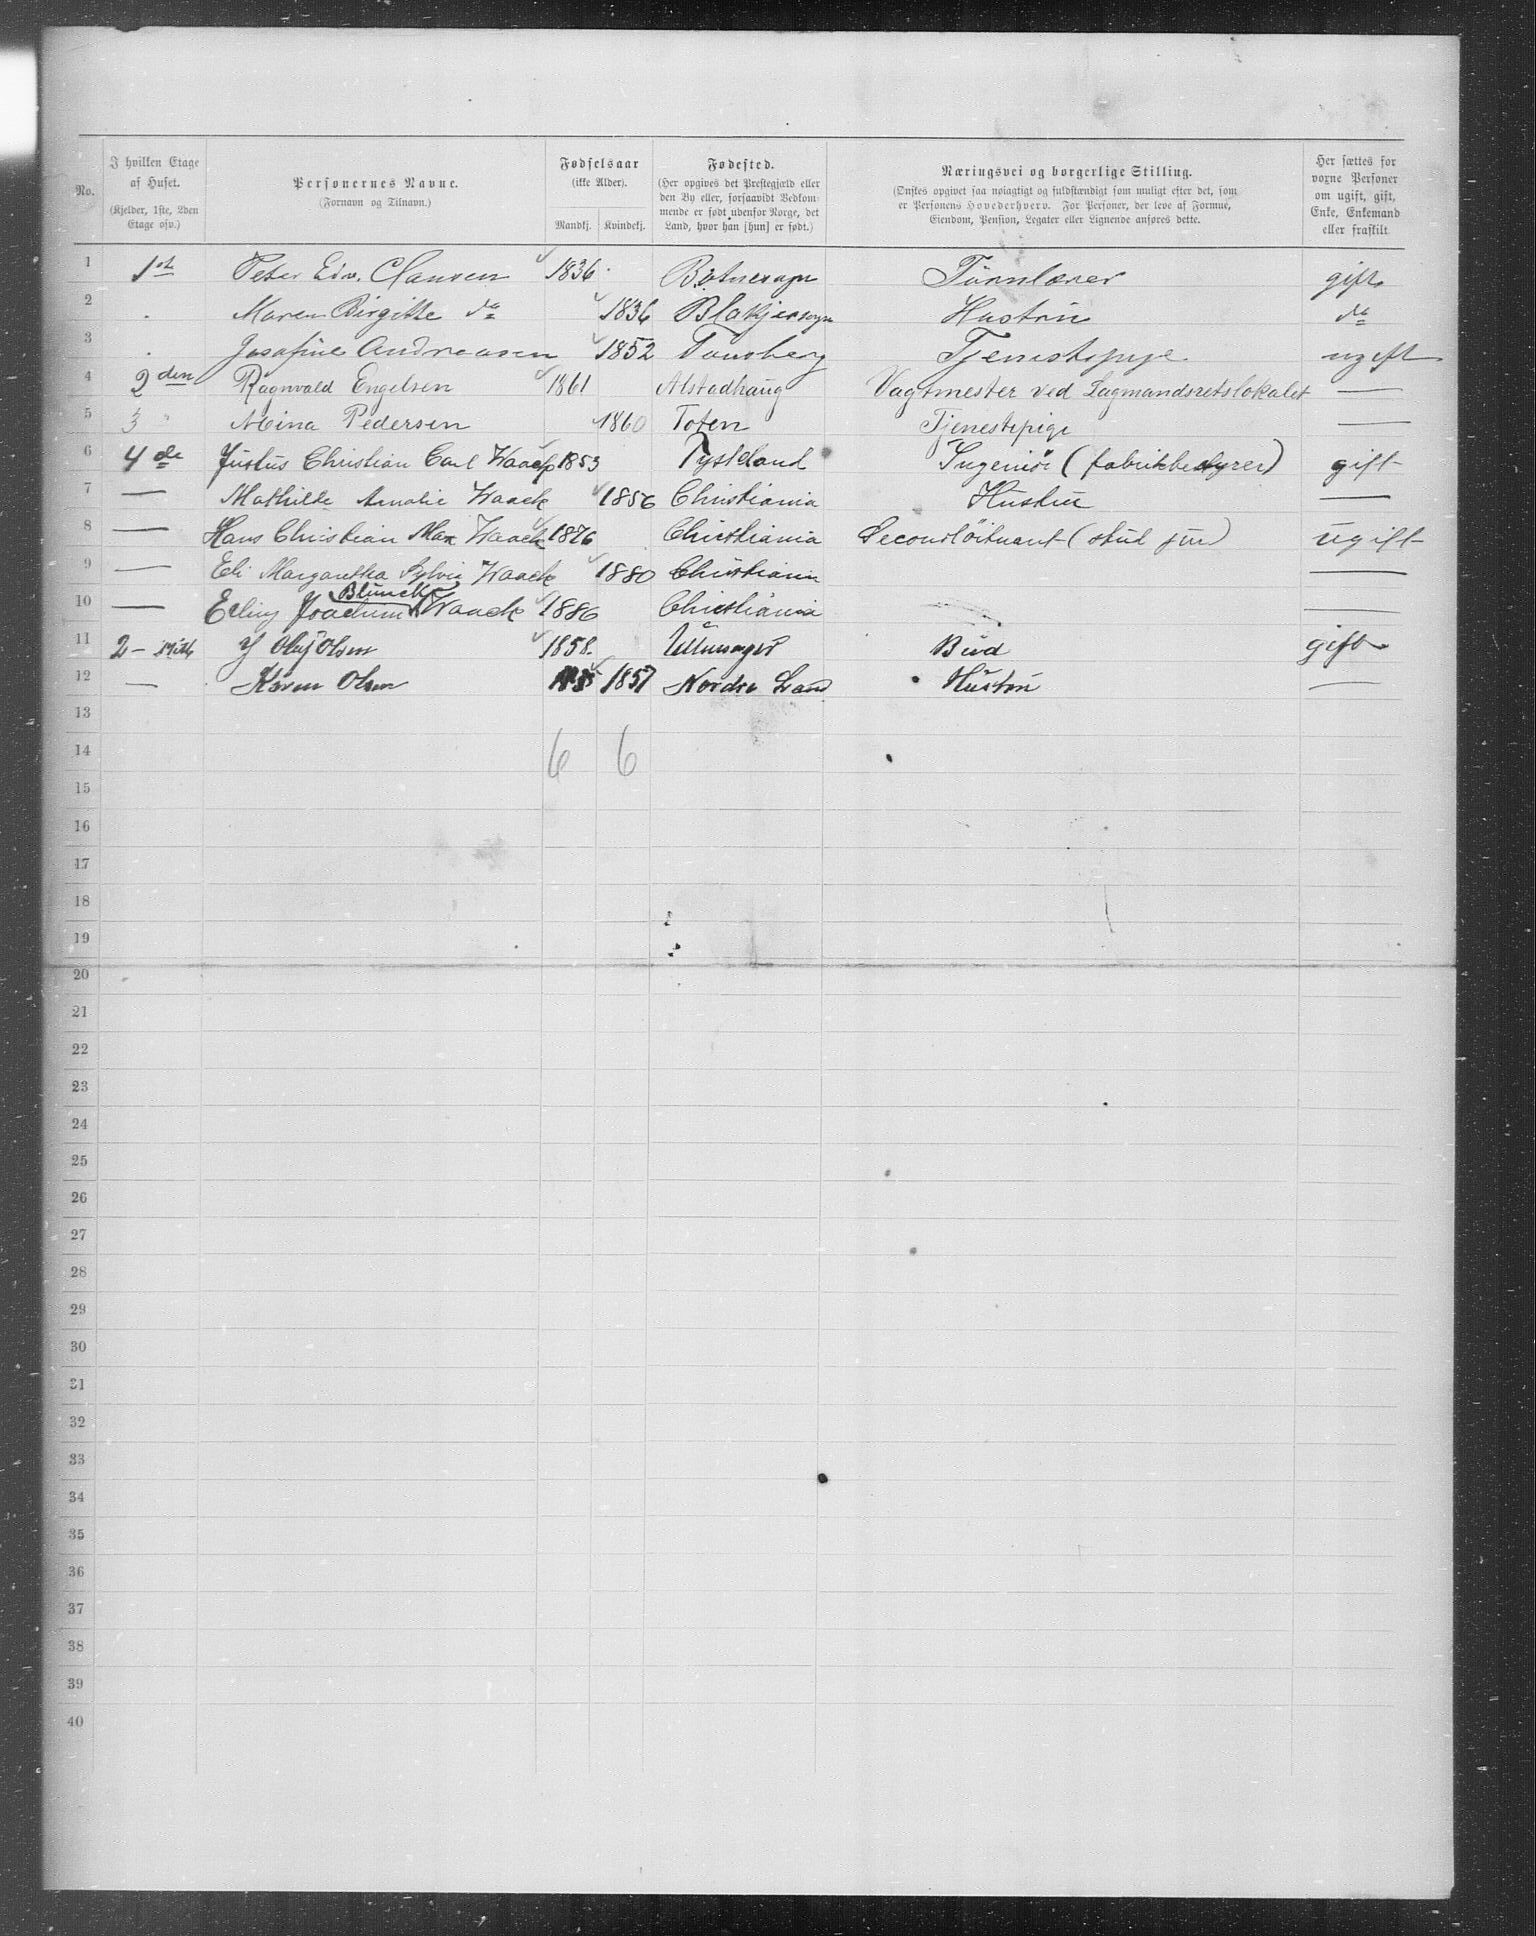 No.
I hvilken Etage af Huset.
(Kjelder, 1ste, 2den Etage osv.)
Personernes Navne.
(Fornavn og Tilnavn.)
Fødselsaar
(ikke Alder).
Mandkj. Kvindekj.
Fødested.
(Her opgives det Præstegjæld eller den By eller, forsaavidt Vedkommende er født udenfor Norge, det Land, hvor han [hun] er født.)
Næringsvei og borgerlige Stilling.
(Ønskes opgivet saa nøiagtigt og fuldstændigt som muligt efter det, som er Personens Hovederhverv. For Personer, der leve af Formue, Eiendom, Pension, Legater eller Lignende anføres dette.)
Her sættes for voxne Personer om ugift, gift, Enke, Enkemand eller fraskilt.
1 1st Peter Edv. Clausen 1836 Botnesogn Turnlærer gift
2 Maren Birgitte do 1836 Blakjersogn Hustru do
3 Josafine Andreasen 1852 Tønsberg Tjenestepige ugift
4 2den Ragnvald Engelsen 1861 Alstadhaug Vagtmester ved Lagmandsretslokalet —
5 3 " Mina Pedersen 1860 Toten Tjenestepige —
6 4de Justus Christian Carl Waack 1853 Tyskland Ingeniør (fabrikbestyrer) gift
7 — Mathilde Amalie Waack 1856 Christiania Hustru —
8 — Hans Christian Max Waack 1876 Christiania Secondløitnant (stud jur) ugift
9 — Eli Margaretha Sylvia Waack 1880 Christiania —
10 — Erling Joachim Blunck Waack 1886 Christiania —
11 2 - Olaf Olsen 1858. Ullensager Bud gift
12 — Karen Olsen 1857 Nordre Land Hustru —
13
14 6 6
15
16
17
18
19
20
21
22
23
24
25
26
27
28
29
30
31
32
33
34
35
36
37
38
39
40